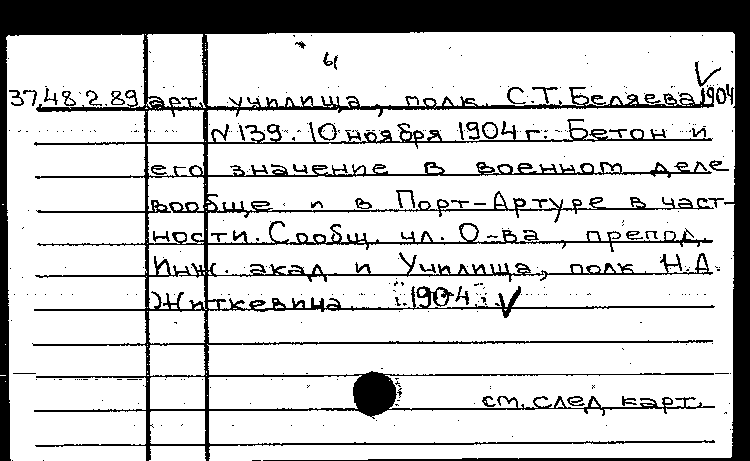 37.48.2.89 арт. училища, полк. С.Т. Беляева 1904
N 139. 10 ноября 1904 г. Бетон и
его значение в военном деле
вообще и в Порт-Артуре в част-
ности. Сообщ. чл. О-ва, препод.
Инж. акад. и Училища, полк. Н.А.
Житкевича. 1904
см. след. карт.